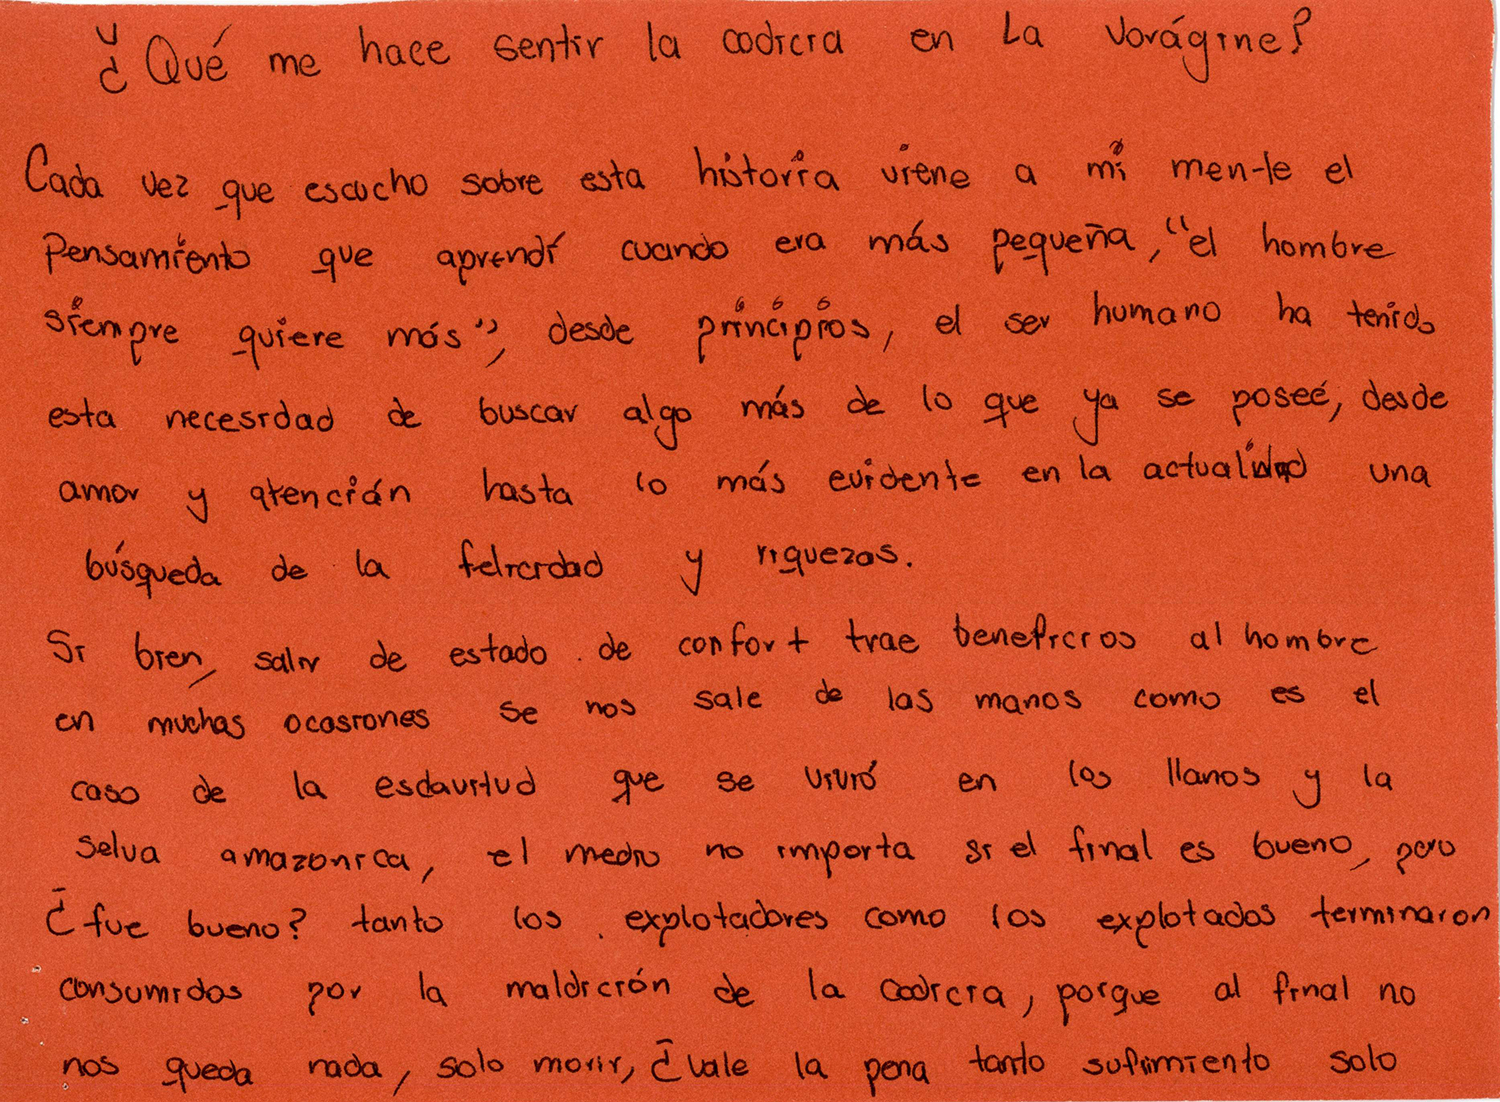 ¿Qué me hace sentir la codicia en La Vorágine?
Cada vez que escucho sobre esta historia viene a mi mente el
pensamiento que aprendí cuando era más pequeña, "el hombre
siempre quiere más", desde principios, el ser humano ha tenido
esta necesidad de buscar algo más de lo que ya se poseé, desde
amor y atención hasta lo más evidente en la actualidad una
búsqueda de la felicidad y riquezas.
Si bien, salir de estado de confort trae beneficios al hombre
en muchas ocasiones se nos sale de las manos como es el
caso de la esclavitud que se vivió en los llanos y la
selva amazonica, el medio no importa si el final es bueno, pero
¿fue bueno? tanto los explotadores como los explotados terminaron
consumidos por la maldición de la codicia, porque al final no
nos queda nada, solo morir, ¿vale la pena tanto sufrimiento solo